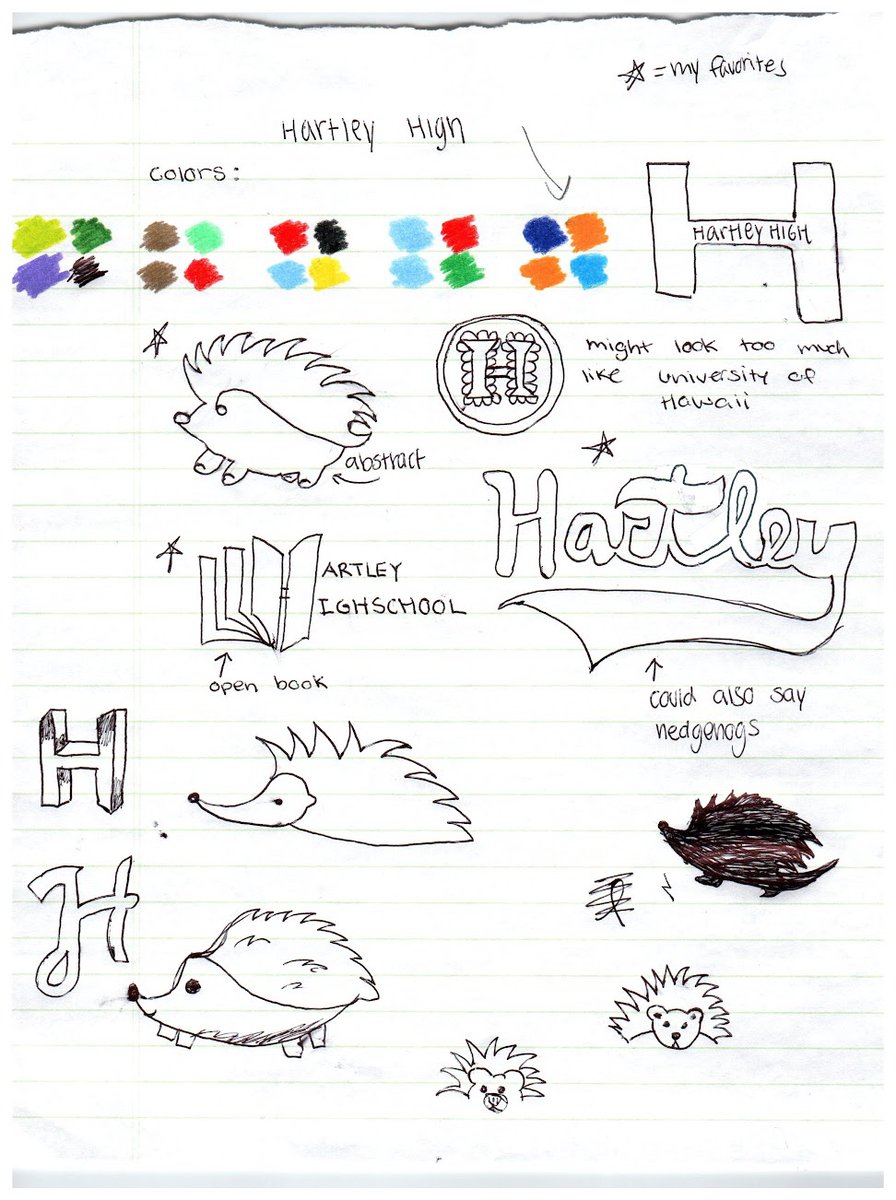 ☆ = my favorites
Hartley High
Colors:
HARTLEY HIGH
H
might look too much
like university of
Hawaii
abstract
Hartley
ARTLEY
IGHSCHOOL
open book
could also say
hedgehogs
H
H